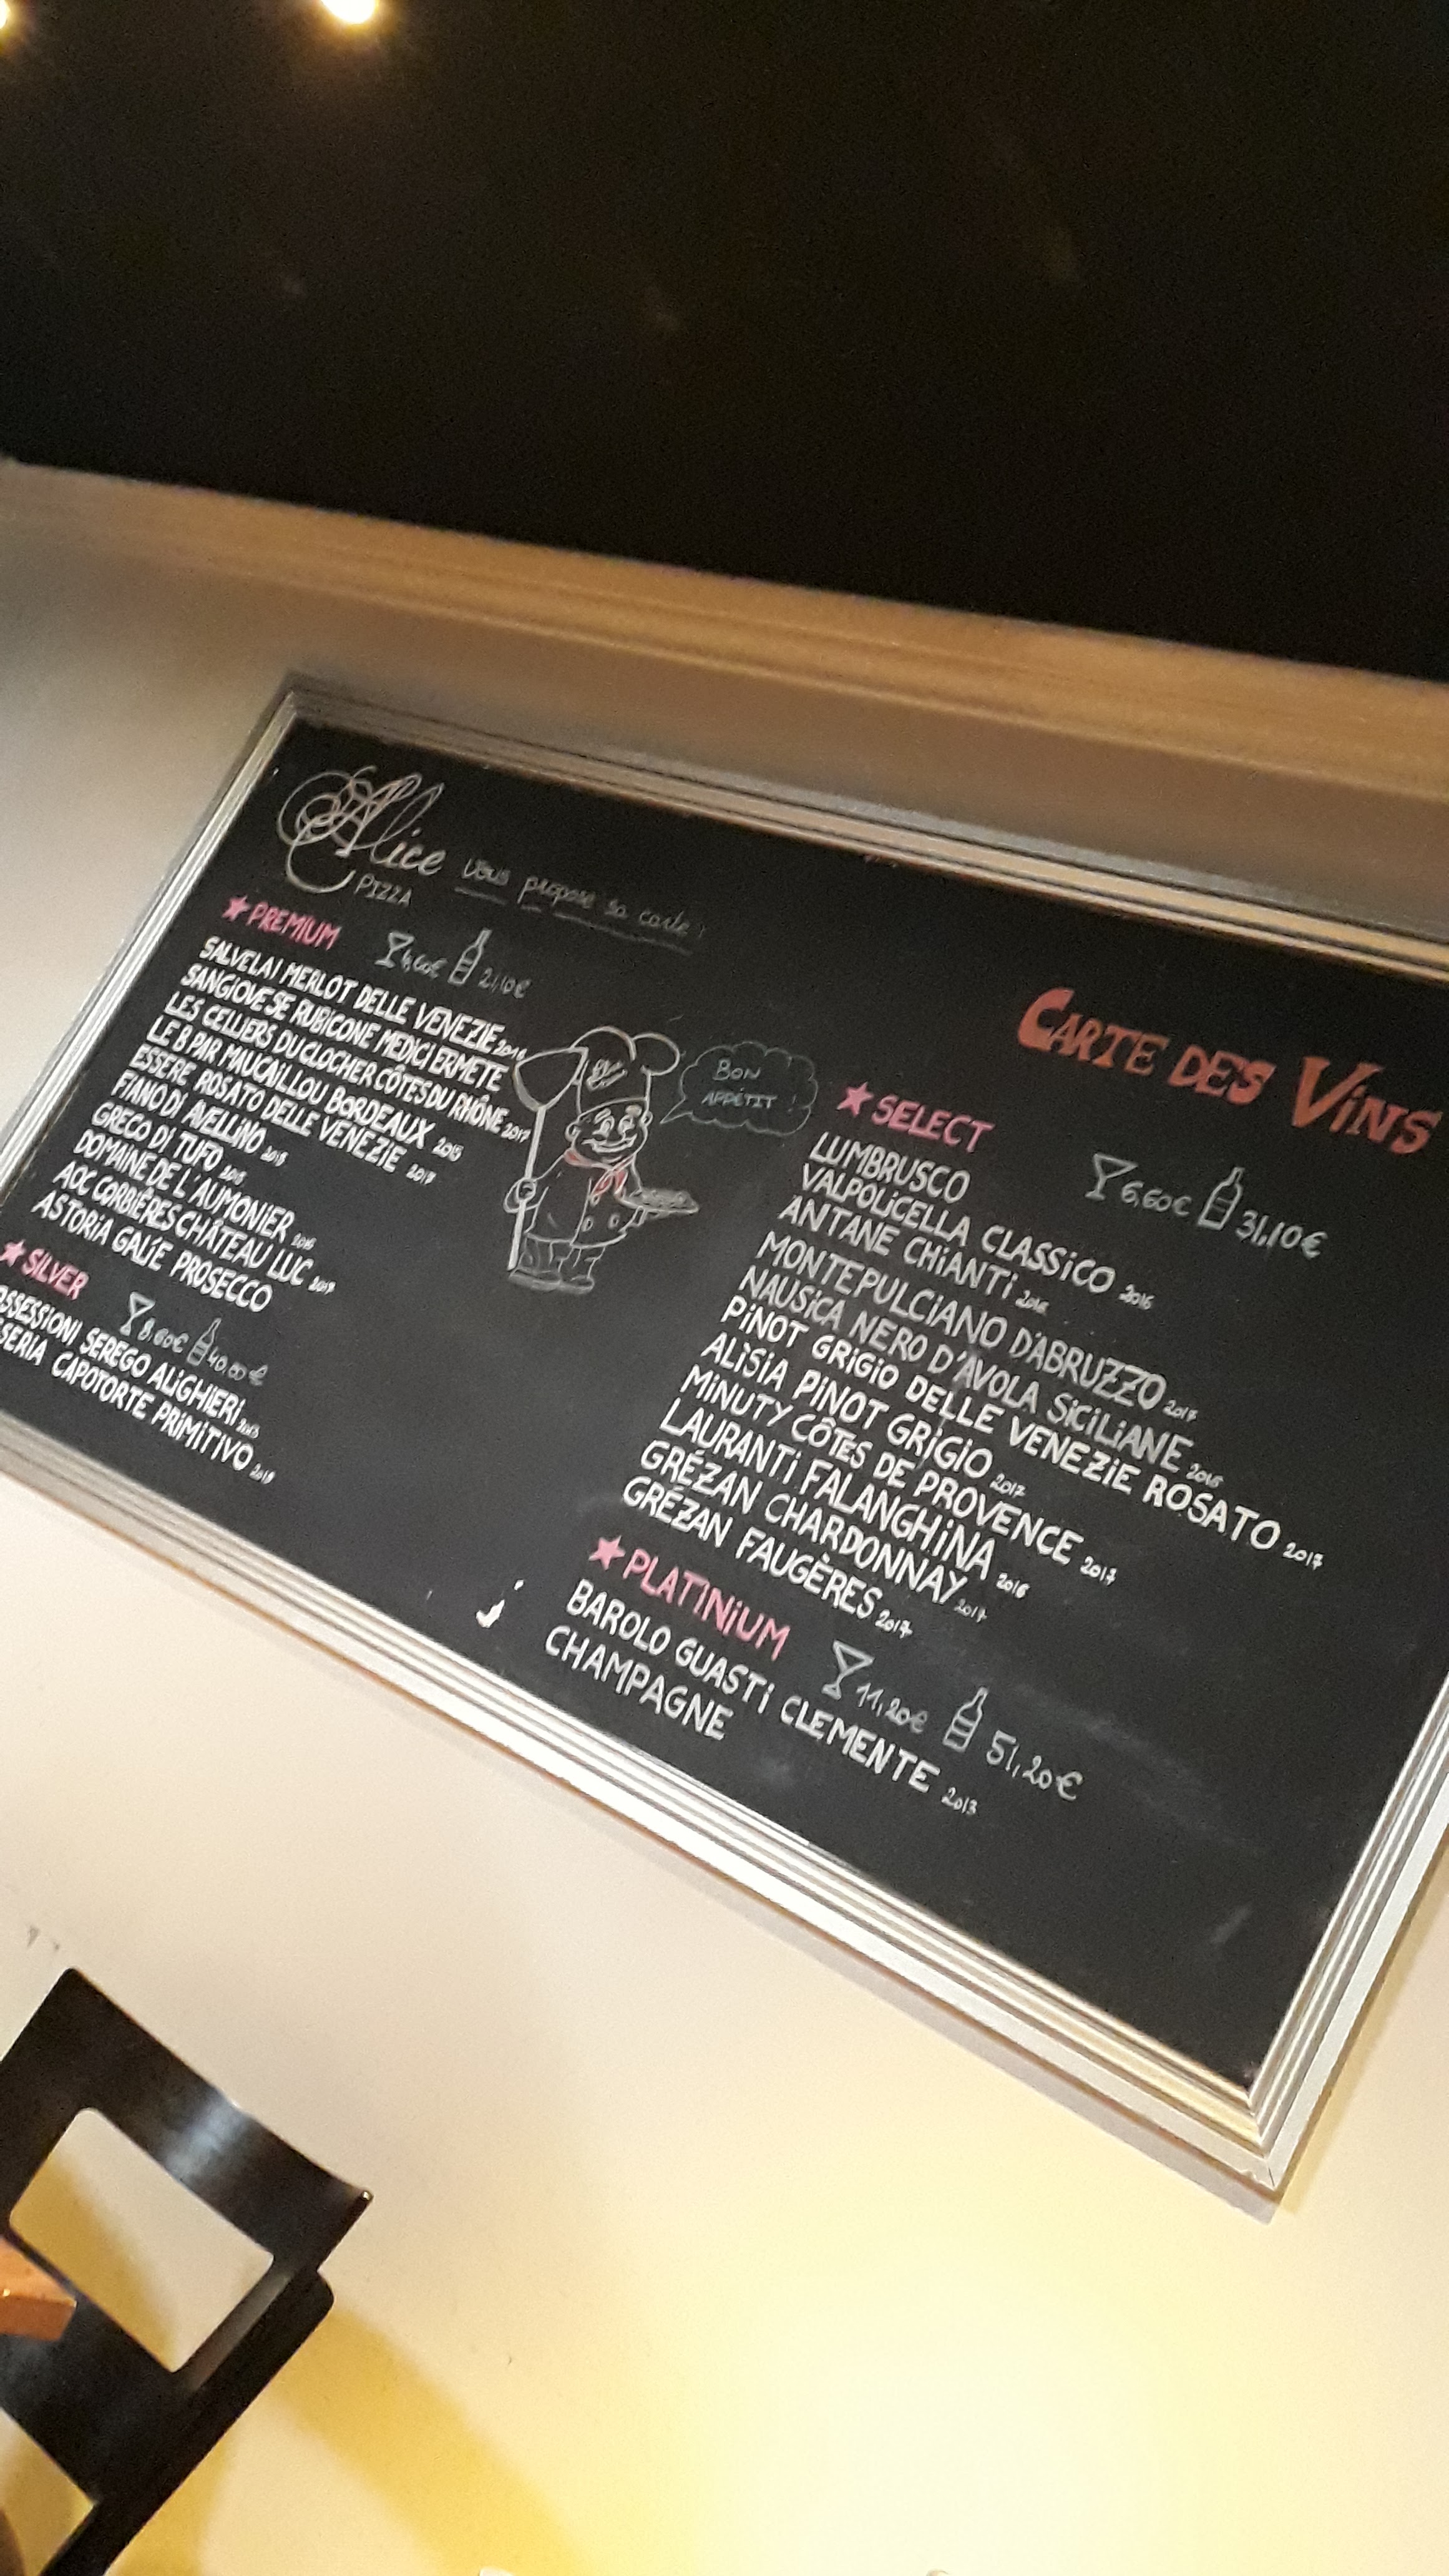 Alice
PIZZA
vous propose sa carte !
CARTE DES VINS
PREMIUM
21,10€
SALVELAI MERLOT DELLE VENEZIE 2016
SANGIOVESE RUBICONE MEDICI ERMETE
LES CELLIERS DU CLOCHER CÔTES DU RHÔNE 2017
LE B PAR MAUCAILLOU BORDEAUX 2015
ESSERE ROSATO DELLE VENEZIE 2017
FIANO DI AVELLINO 2015
GRECO DI TUFO 2015
DOMAINE DE L'AUMONIER 2015
AOC CORBIÈRES CHÂTEAU LUC 2017
ASTORIA GALIE PROSECCO
SILVER
8,60€ 40,00€
SEREGO ALIGHIERI 2013
CAPOTORTE PRIMITIVO 2015
BON
APPÉTIT !
SELECT
6,60€ 31,10€
LUMBRUSCO
VALPOLICELLA CLASSICO 2016
ANTANE CHIANTI 2016
MONTEPULCIANO D'ABRUZZO 2017
NAUSICA NERO D'AVOLA SICILIANE 2015
PINOT GRIGIO DELLE VENEZIE ROSATO 2017
ALISIA PINOT GRIGIO 2017
MINUTY CÔTES DE PROVENCE 2017
LAURANTI FALANGHINA 2016
GRÉZAN CHARDONNAY 2017
GRÉZAN FAUGÈRES 2017
PLATINIUM
11,20€ 51,20€
BAROLO GUASTI CLEMENTE 2013
CHAMPAGNE